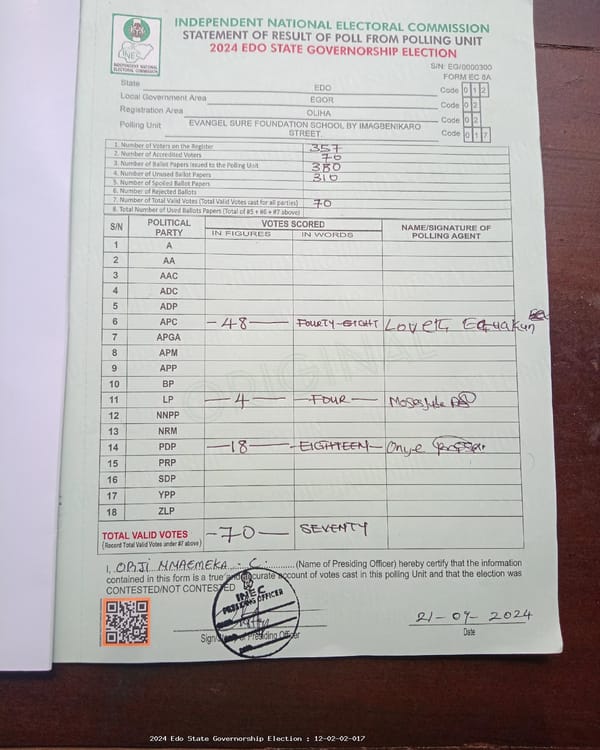 INDEPENDENT NATIONAL ELECTORAL COMMISSION
STATEMENT OF RESULT OF POLL FROM POLLING UNIT
2024 EDO STATE GOVERNORSHIP ELECTION
INEC
INDEPENDENT NATIONAL
ELECTORAL COMMISSION
S/N: EG/0000300
FORM EC 8A
State EDO Code 0 1 2
Local Government Area EGOR Code 0 2
Registration Area OLIHA Code 0 2
Polling Unit EVANGEL SURE FOUNDATION SCHOOL BY IMAGBENIKARO STREET. Code 0 1 7
1. Number of Voters on the Register 357
2. Number of Accredited Voters 70
3. Number of Ballot Papers Issued to the Polling Unit 380
4. Number of Unused Ballot Papers 310
5. Number of Spoiled Ballot Papers
6. Number of Rejected Ballots
7. Number of Total Valid Votes (Total Valid Votes cast for all parties) 70
8. Total Number of Used Ballots Papers (Total of #5 + #6 + #7 above)
S/N POLITICAL PARTY VOTES SCORED NAME/SIGNATURE OF POLLING AGENT
IN FIGURES IN WORDS
1 A
2 AA
3 AAC
4 ADC
5 ADP
6 APC -48- FOURTY-EIGHT
7 APGA
8 APM
9 APP
10 BP
11 LP -4- -FOUR-
12 NNPP
13 NRM
14 PDP -18- -EIGHTEEN- Onye
15 PRP
16 SDP
17 YPP
18 ZLP
TOTAL VALID VOTES -70- SEVENTY
(Record Total Valid Votes under #7 above)
ORIGINAL
I, ORJI NNAEMEKA . C. (Name of Presiding Officer) hereby certify that the information
contained in this form is a true and accurate account of votes cast in this polling Unit and that the election was
CONTESTED/NOT CONTESTED
INEC
PRESIDING OFFICER
INEC
Sign of Presiding Officer
21-09-2024
Date
2024 Edo State Governorship Election : 12-02-02-017